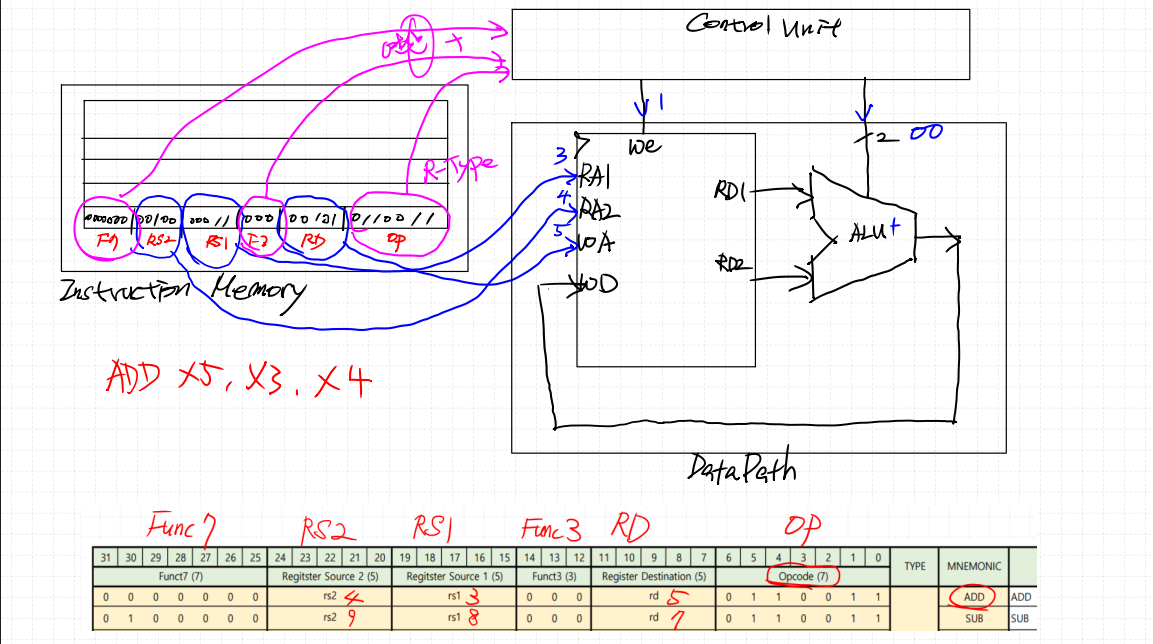 Control Unit
+
1
2 00
we
R-Type
3
RA1
4
RA2
5
WA
WD
RD1
RD2
ALU +
0000000 00100 00011 000 00101 0110011
F7 RS2 RS1 F3 RD OP
Instruction Memory
ADD X5, X3, X4
DataPath
Func7 RS2 RS1 Func3 RD OP
31 30 29 28 27 26 25 24 23 22 21 20 19 18 17 16 15 14 13 12 11 10 9 8 7 6 5 4 3 2 1 0 TYPE MNEMONIC
Funct7 (7) Regitster Source 2 (5) Regitster Source 1 (5) Funct3 (3) Register Destination (5) Opcode (7)
0 0 0 0 0 0 0 rs2 4 rs1 3 0 0 0 rd 5 0 1 1 0 0 1 1 ADD ADD
0 1 0 0 0 0 0 rs2 9 rs1 8 0 0 0 rd 7 0 1 1 0 0 1 1 SUB SUB